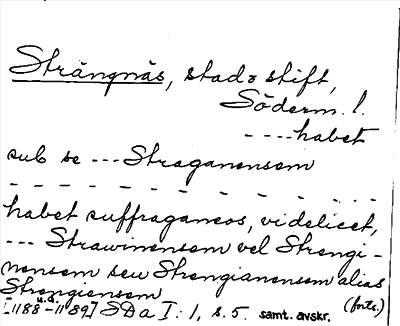 Strängnäs, stad o stift,
Söderm. l.
---- habet
sub se --- Straganensem
- - - - - - - - - - - -
habet suffraganeos, videlicet,
--- Strawinensem vel Strengi-
nensem seu Strengianensem alias
Strengiensem (forts.)
[1188 u.å. - 1189] SDa I: 1, s. 5. samt. avskr.